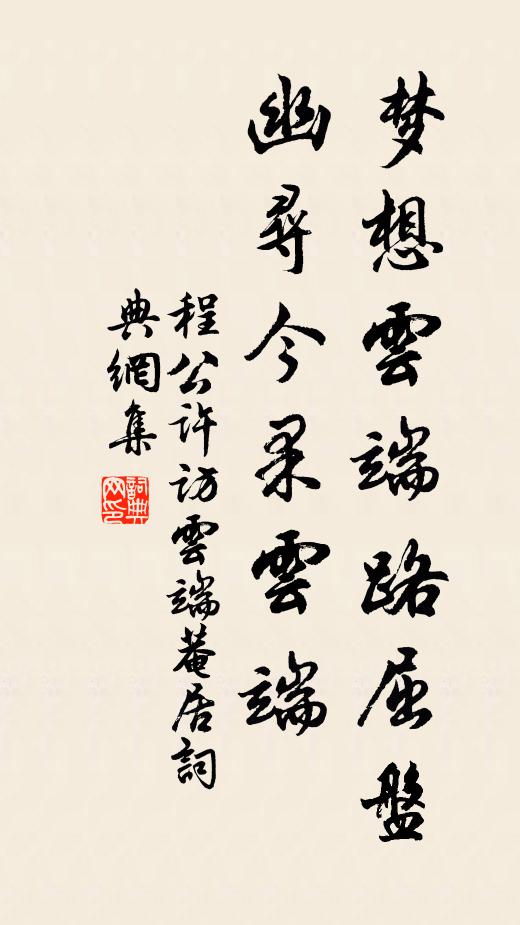 梦想雲端路屈盤
幽尋今果雲端
程公許訪雲端菴居詞
典網集
詞典
网印